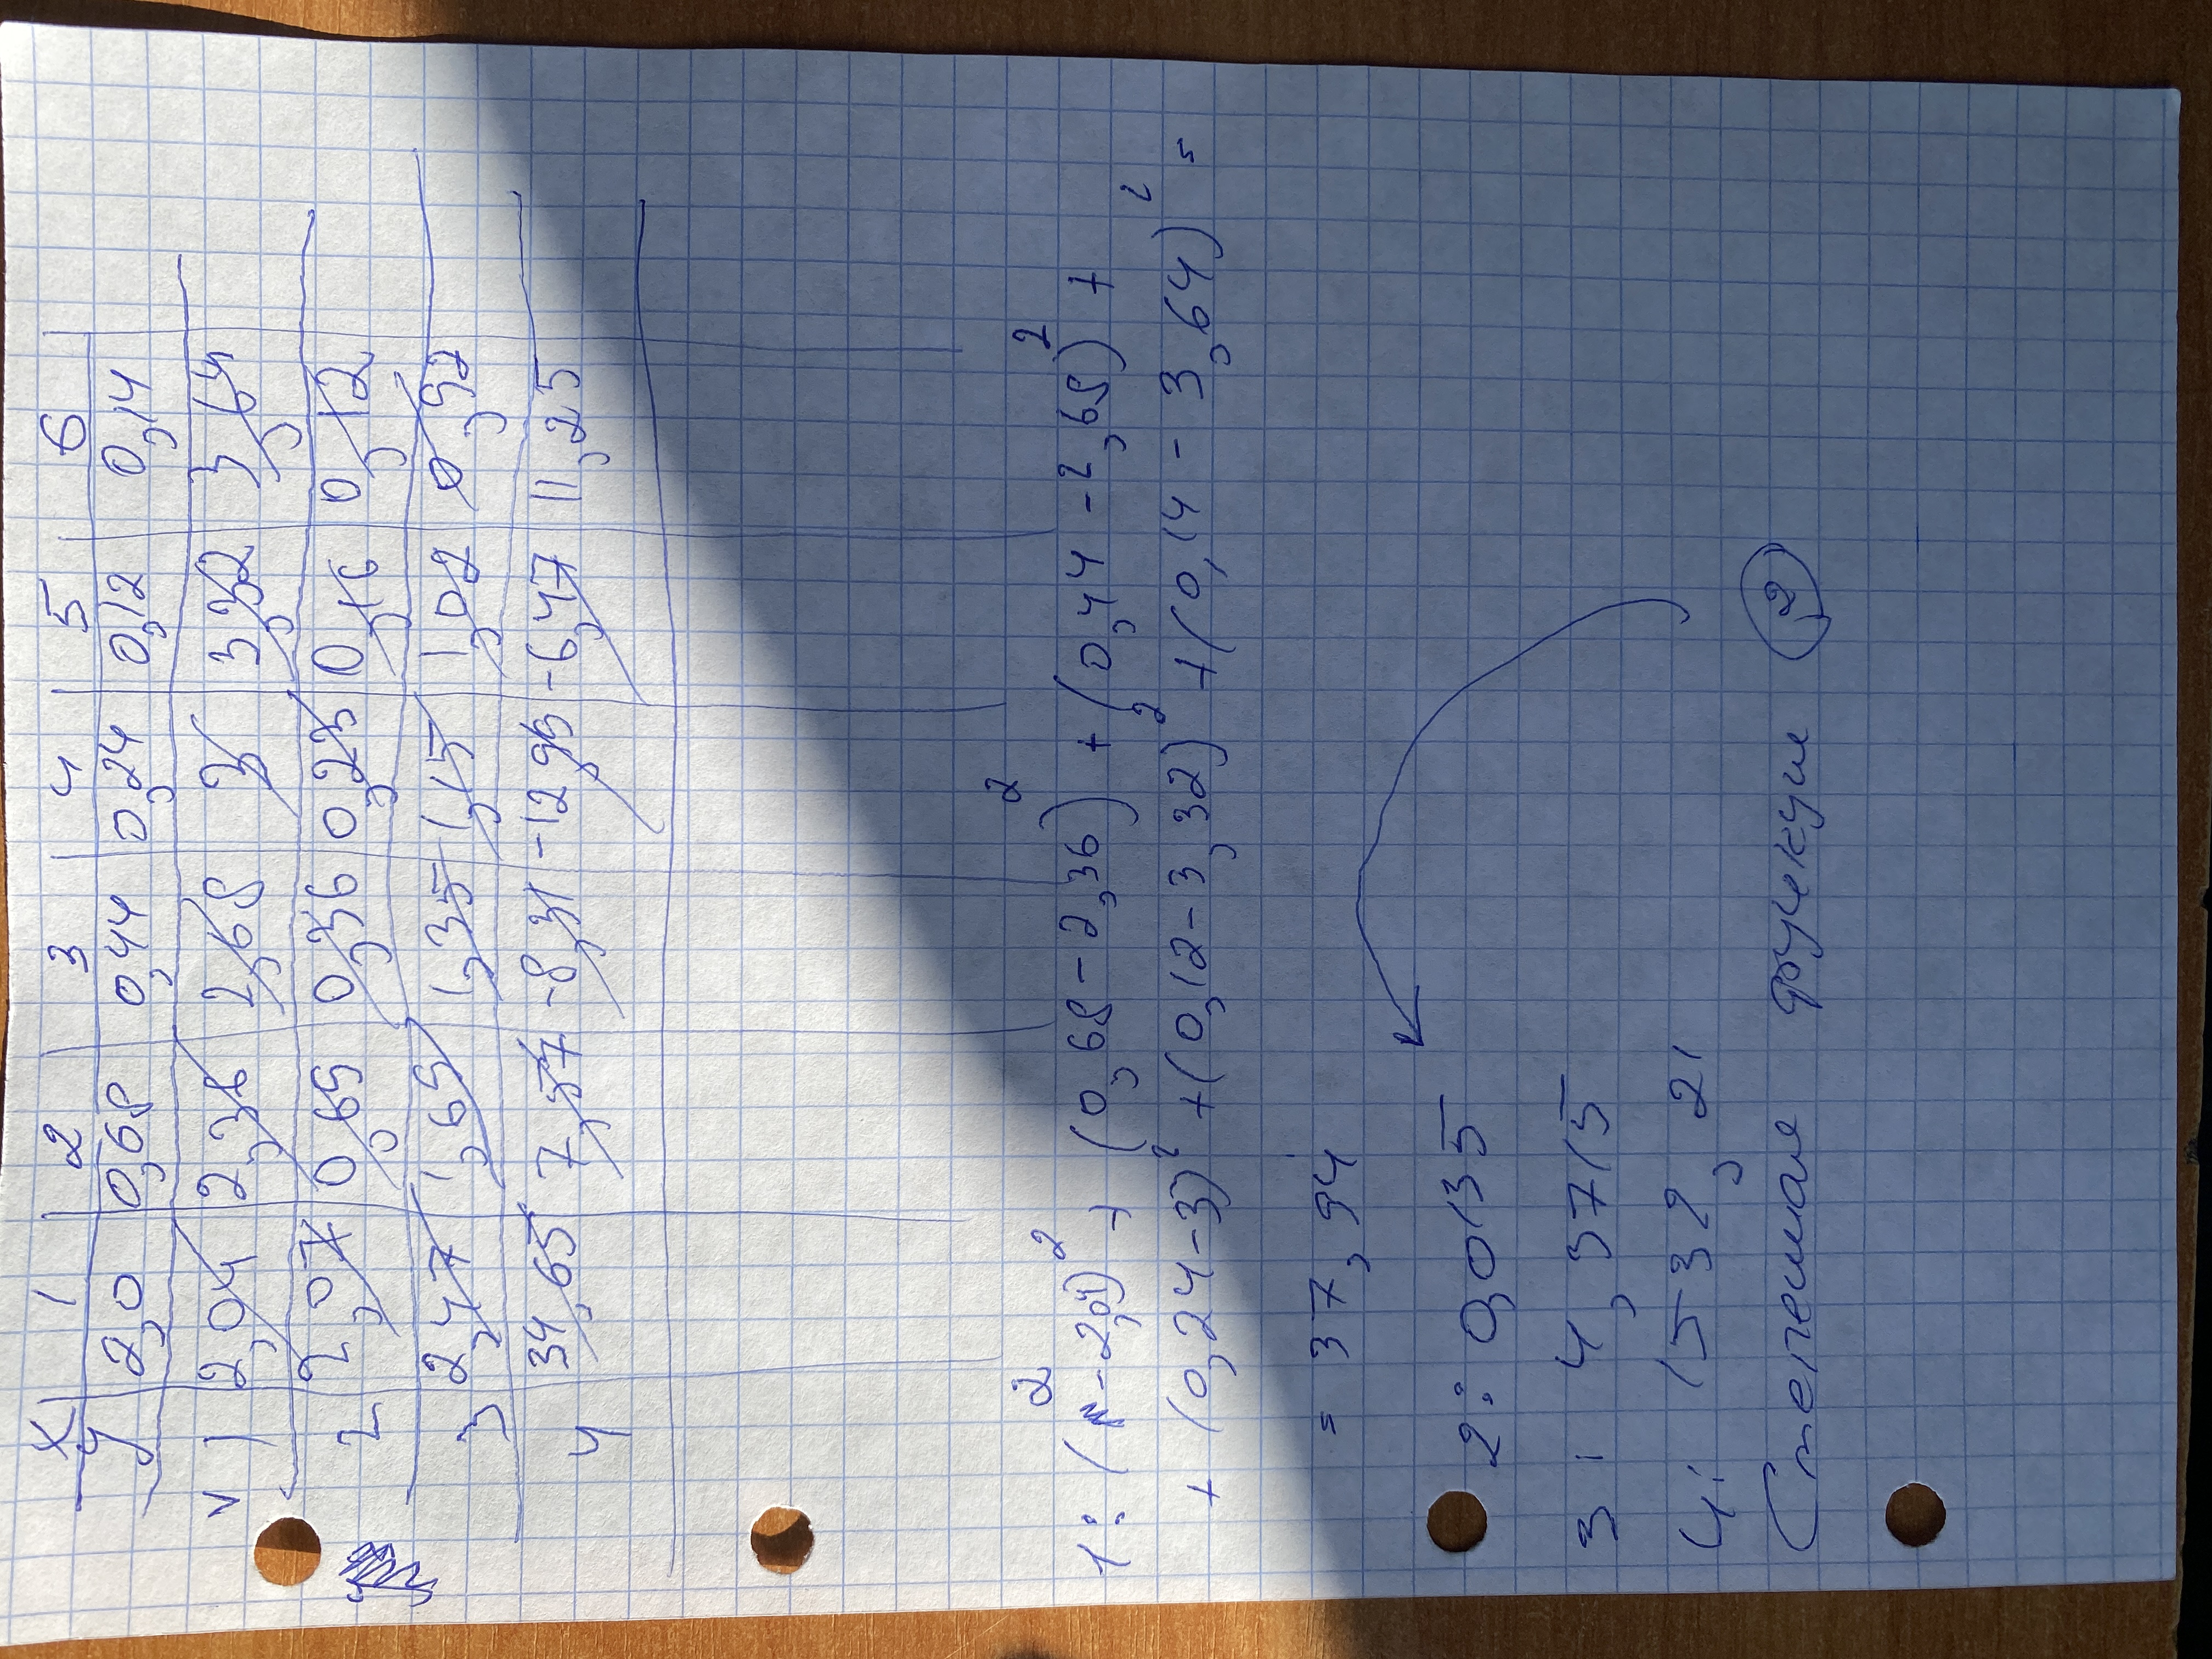 x 1 2 3 4 5 6
y 2,0 0,68 0,44 0,24 0,12 0,14
v 1 2,04 2,36 2,68 3 3,32 3,64
2 2,07 0,69 0,36 0,23 0,16 0,12
3 2,47 1,69 1,35 1,15 1,02 0,92
4 34,65 7,57 -8,31 -12,99 -6,47 11,25
1: (2 - 2,04)² + (0,68 - 2,36)² + (0,44 - 2,68)² +
+ (0,24 - 3)² + (0,12 - 3,32)² + (0,14 - 3,64)² =
= 37,94
2: 0,0135
3: 4,3715
4: 1532,21
Степенная функция 2